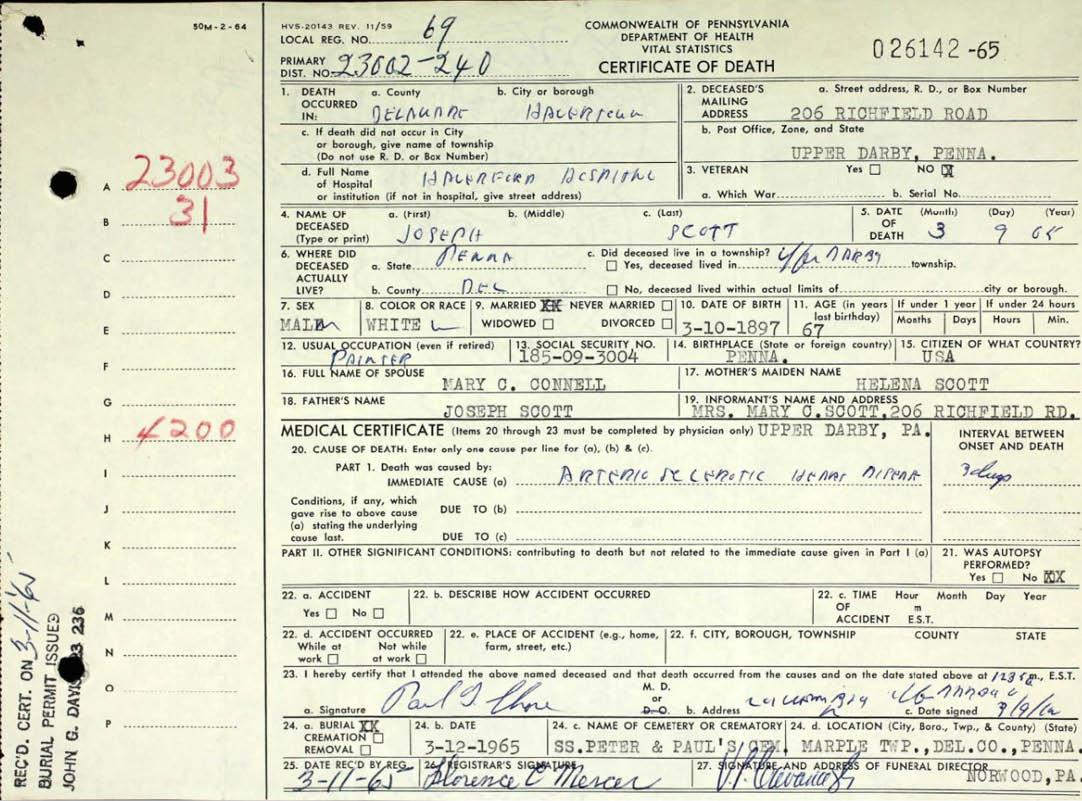 50M-2-64
HVS-20143 REV. 11/59
LOCAL REG. NO. 69
PRIMARY
DIST. NO. 23002-240
COMMONWEALTH OF PENNSYLVANIA
DEPARTMENT OF HEALTH
VITAL STATISTICS
CERTIFICATE OF DEATH
026142-65
1. DEATH OCCURRED IN:
a. County
DELAWARE
b. City or borough
c. If death did not occur in City
or borough, give name of township
(Do not use R. D. or Box Number)
d. Full Name
of Hospital
or institution (if not in hospital, give street address)
HAVERFORD HOSPITAL
2. DECEASED'S MAILING ADDRESS
a. Street address, R. D., or Box Number
206 RICHFIELD ROAD
b. Post Office, Zone, and State
UPPER DARBY, PENNA.
3. VETERAN Yes NO X
a. Which War b. Serial No.
4. NAME OF DECEASED (Type or print)
a. (First) b. (Middle) c. (Last)
JOSEPH SCOTT
5. DATE OF DEATH (Month) (Day) (Year)
3 9 65
6. WHERE DID DECEASED ACTUALLY LIVE?
a. State PENNA
b. County DEL
c. Did deceased live in a township?
Yes, deceased lived in Upper DARBY township.
No, deceased lived within actual limits of city or borough.
7. SEX
MALE
8. COLOR OR RACE
WHITE
9. MARRIED XX NEVER MARRIED
WIDOWED DIVORCED
10. DATE OF BIRTH
3-10-1897
11. AGE (in years last birthday)
67
If under 1 year
Months Days
If under 24 hours
Hours Min.
12. USUAL OCCUPATION (even if retired)
PAINTER
13. SOCIAL SECURITY NO.
185-09-3004
14. BIRTHPLACE (State or foreign country)
PENNA.
15. CITIZEN OF WHAT COUNTRY?
USA
16. FULL NAME OF SPOUSE
MARY C. CONNELL
17. MOTHER'S MAIDEN NAME
HELENA SCOTT
18. FATHER'S NAME
JOSEPH SCOTT
19. INFORMANT'S NAME AND ADDRESS
MRS. MARY C.SCOTT,206 RICHFIELD RD.
UPPER DARBY, PA.
MEDICAL CERTIFICATE (Items 20 through 23 must be completed by physician only)
INTERVAL BETWEEN
ONSET AND DEATH
20. CAUSE OF DEATH: Enter only one cause per line for (a), (b) & (c).
PART 1. Death was caused by:
IMMEDIATE CAUSE (a) ARTERIO SCLEROTIC HEART DISEASE
3 days
Conditions, if any, which
gave rise to above cause
(a) stating the underlying
cause last.
DUE TO (b)
DUE TO (c)
PART II. OTHER SIGNIFICANT CONDITIONS: contributing to death but not related to the immediate cause given in Part I (a)
21. WAS AUTOPSY PERFORMED?
Yes No XX
22. a. ACCIDENT
Yes No
22. b. DESCRIBE HOW ACCIDENT OCCURRED
22. c. TIME OF ACCIDENT Hour Month Day Year
m
E.S.T.
22. d. ACCIDENT OCCURRED
While at work Not while at work
22. e. PLACE OF ACCIDENT (e.g., home, farm, street, etc.)
22. f. CITY, BOROUGH, TOWNSHIP COUNTY STATE
23. I hereby certify that I attended the above named deceased and that death occurred from the causes and on the date stated above at m., E.S.T.
a. Signature Paul
M. D.
or
D.O.
b. Address
c. Date signed
24. a. BURIAL XX
CREMATION
REMOVAL
24. b. DATE
3-12-1965
24. c. NAME OF CEMETERY OR CREMATORY
SS.PETER & PAUL'S CEM.
24. d. LOCATION (City, Boro., Twp., & County) (State)
MARPLE TWP.,DEL.CO.,PENNA.
25. DATE REC'D BY REG.
3-11-65
26. REGISTRAR'S SIGNATURE
Florence C Mercer
27. SIGNATURE AND ADDRESS OF FUNERAL DIRECTOR
NORWOOD,PA.
A 23003
B 31
C
D
E
F
G
H 4200
I
J
K
L
M
N
O
P
REC'D. CERT. ON 3-11-65
BURIAL PERMIT ISSUED
JOHN G. DAVIS 23 236